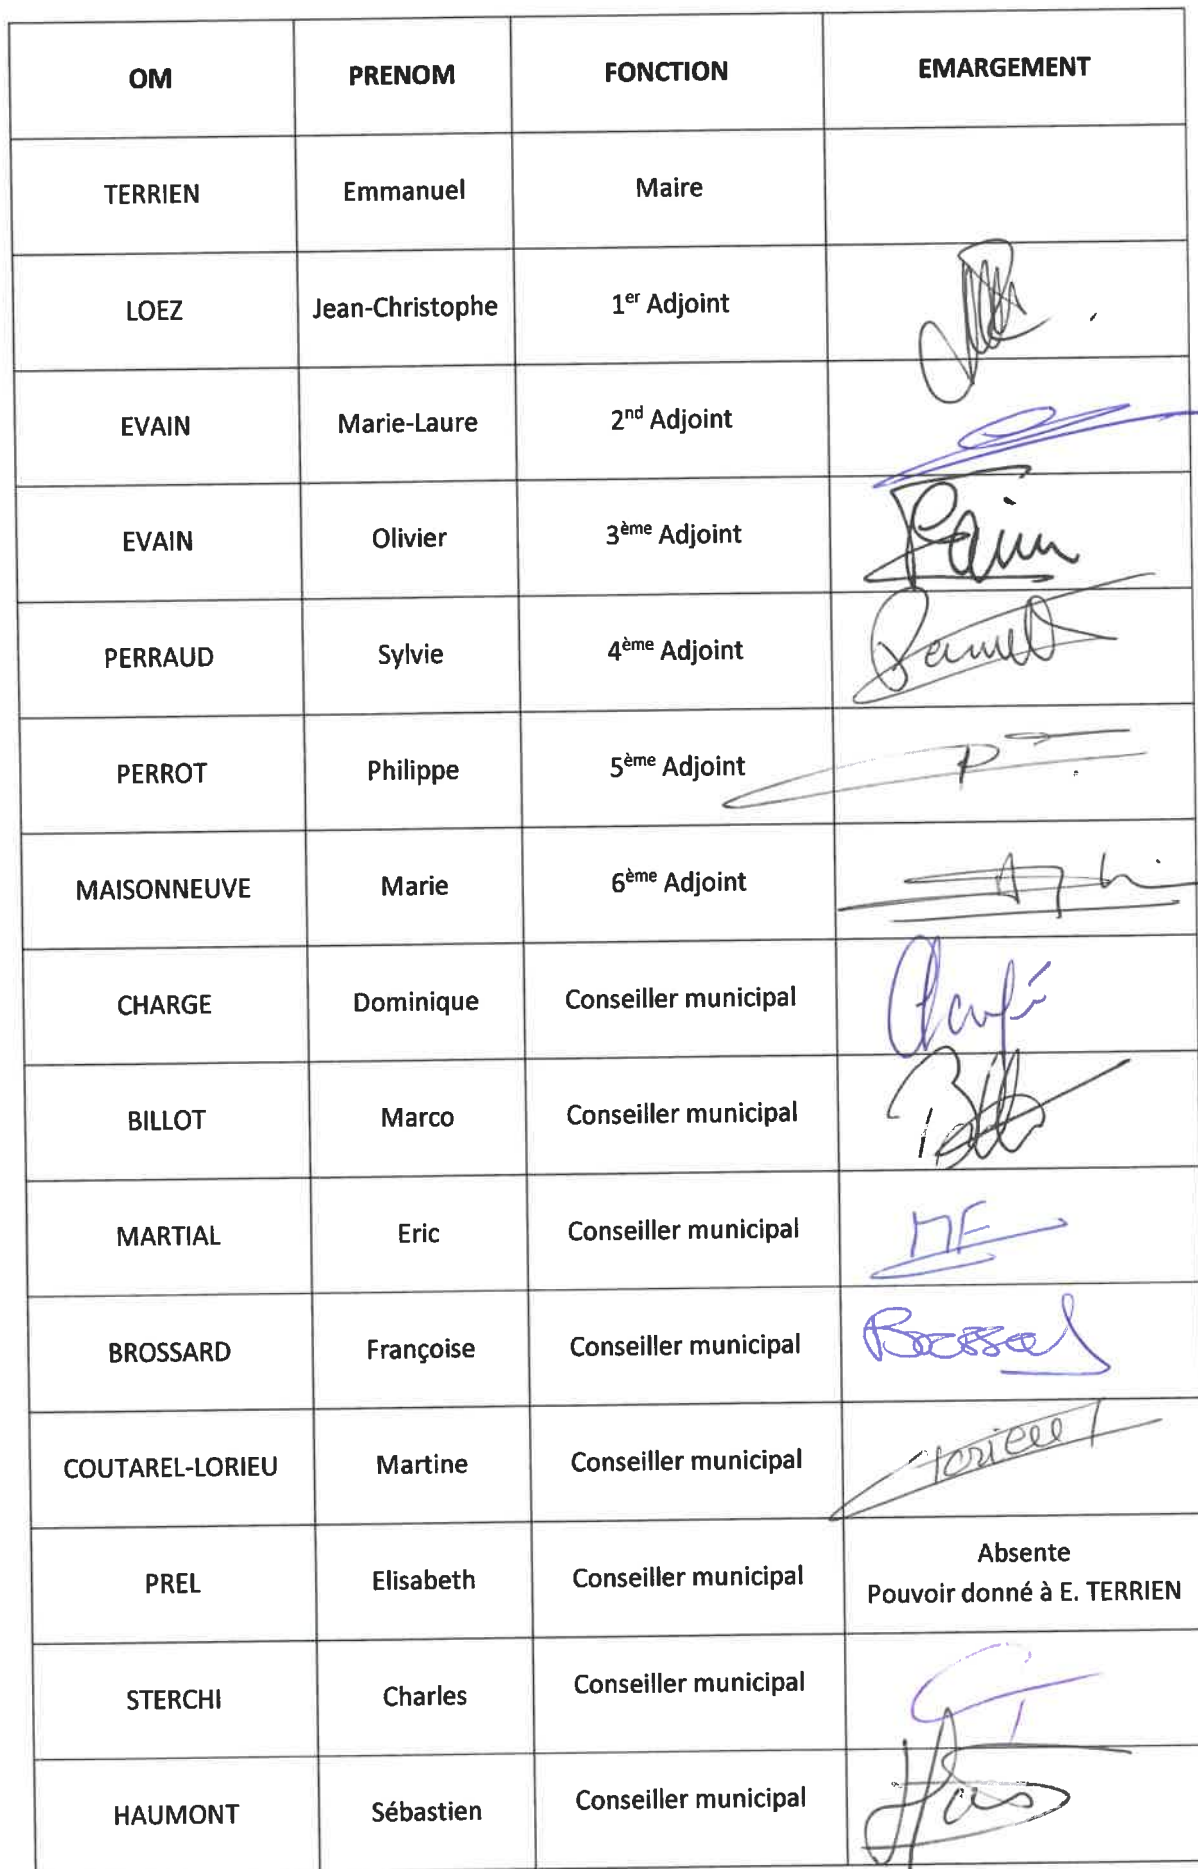 OM PRENOM FONCTION EMARGEMENT
TERRIEN Emmanuel Maire
LOEZ Jean-Christophe 1er Adjoint
EVAIN Marie-Laure 2nd Adjoint
EVAIN Olivier 3ème Adjoint
PERRAUD Sylvie 4ème Adjoint
PERROT Philippe 5ème Adjoint
MAISONNEUVE Marie 6ème Adjoint
CHARGE Dominique Conseiller municipal
BILLOT Marco Conseiller municipal
MARTIAL Eric Conseiller municipal
BROSSARD Françoise Conseiller municipal
COUTAREL-LORIEU Martine Conseiller municipal
PREL Elisabeth Conseiller municipal Absente
Pouvoir donné à E. TERRIEN
STERCHI Charles Conseiller municipal
HAUMONT Sébastien Conseiller municipal